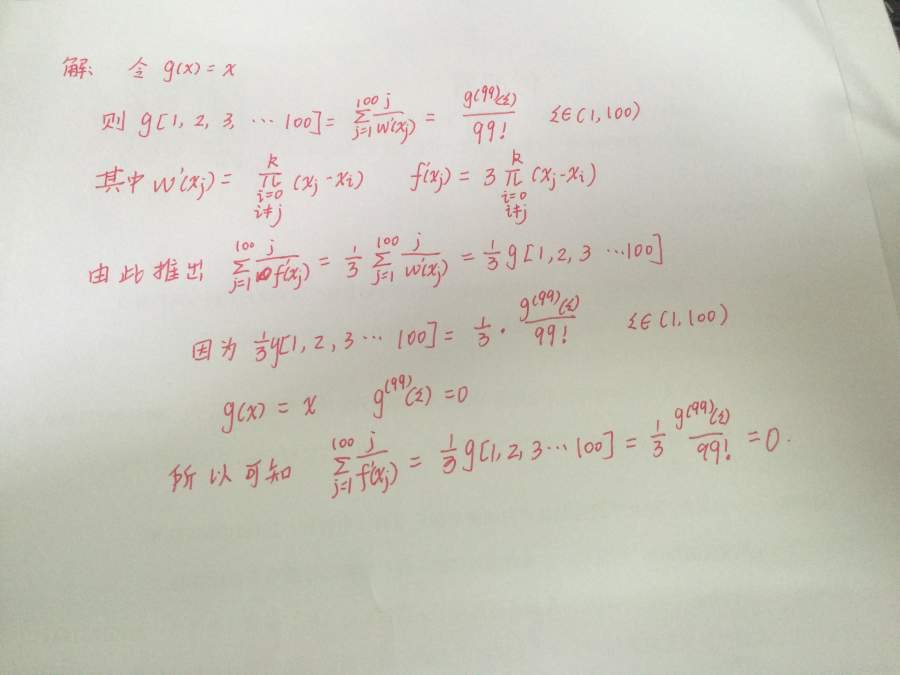 解: 令 g(x) = x
则 g[1, 2, 3, ⋯ 100] = \sum_{j=1}^{100} \frac{j}{w'(x_j)} = \frac{g^{(99)}(ξ)}{99!} ξ∈(1, 100)
其中 w'(x_j) = \prod_{i=0, i≠j}^{k} (x_j - x_i) f'(x_j) = 3 \prod_{i=0, i≠j}^{k} (x_j - x_i)
由此推出 \sum_{j=1}^{100} \frac{j}{f'(x_j)} = \frac{1}{3} \sum_{j=1}^{100} \frac{j}{w'(x_j)} = \frac{1}{3} g[1, 2, 3 ⋯ 100]
因为 \frac{1}{3} g[1, 2, 3 ⋯ 100] = \frac{1}{3} · \frac{g^{(99)}(ξ)}{99!} ξ∈(1, 100)
g(x) = x g^{(99)}(ξ) = 0
所以可知 \sum_{j=1}^{100} \frac{j}{f'(x_j)} = \frac{1}{3} g[1, 2, 3 ⋯ 100] = \frac{1}{3} \frac{g^{(99)}(ξ)}{99!} = 0.